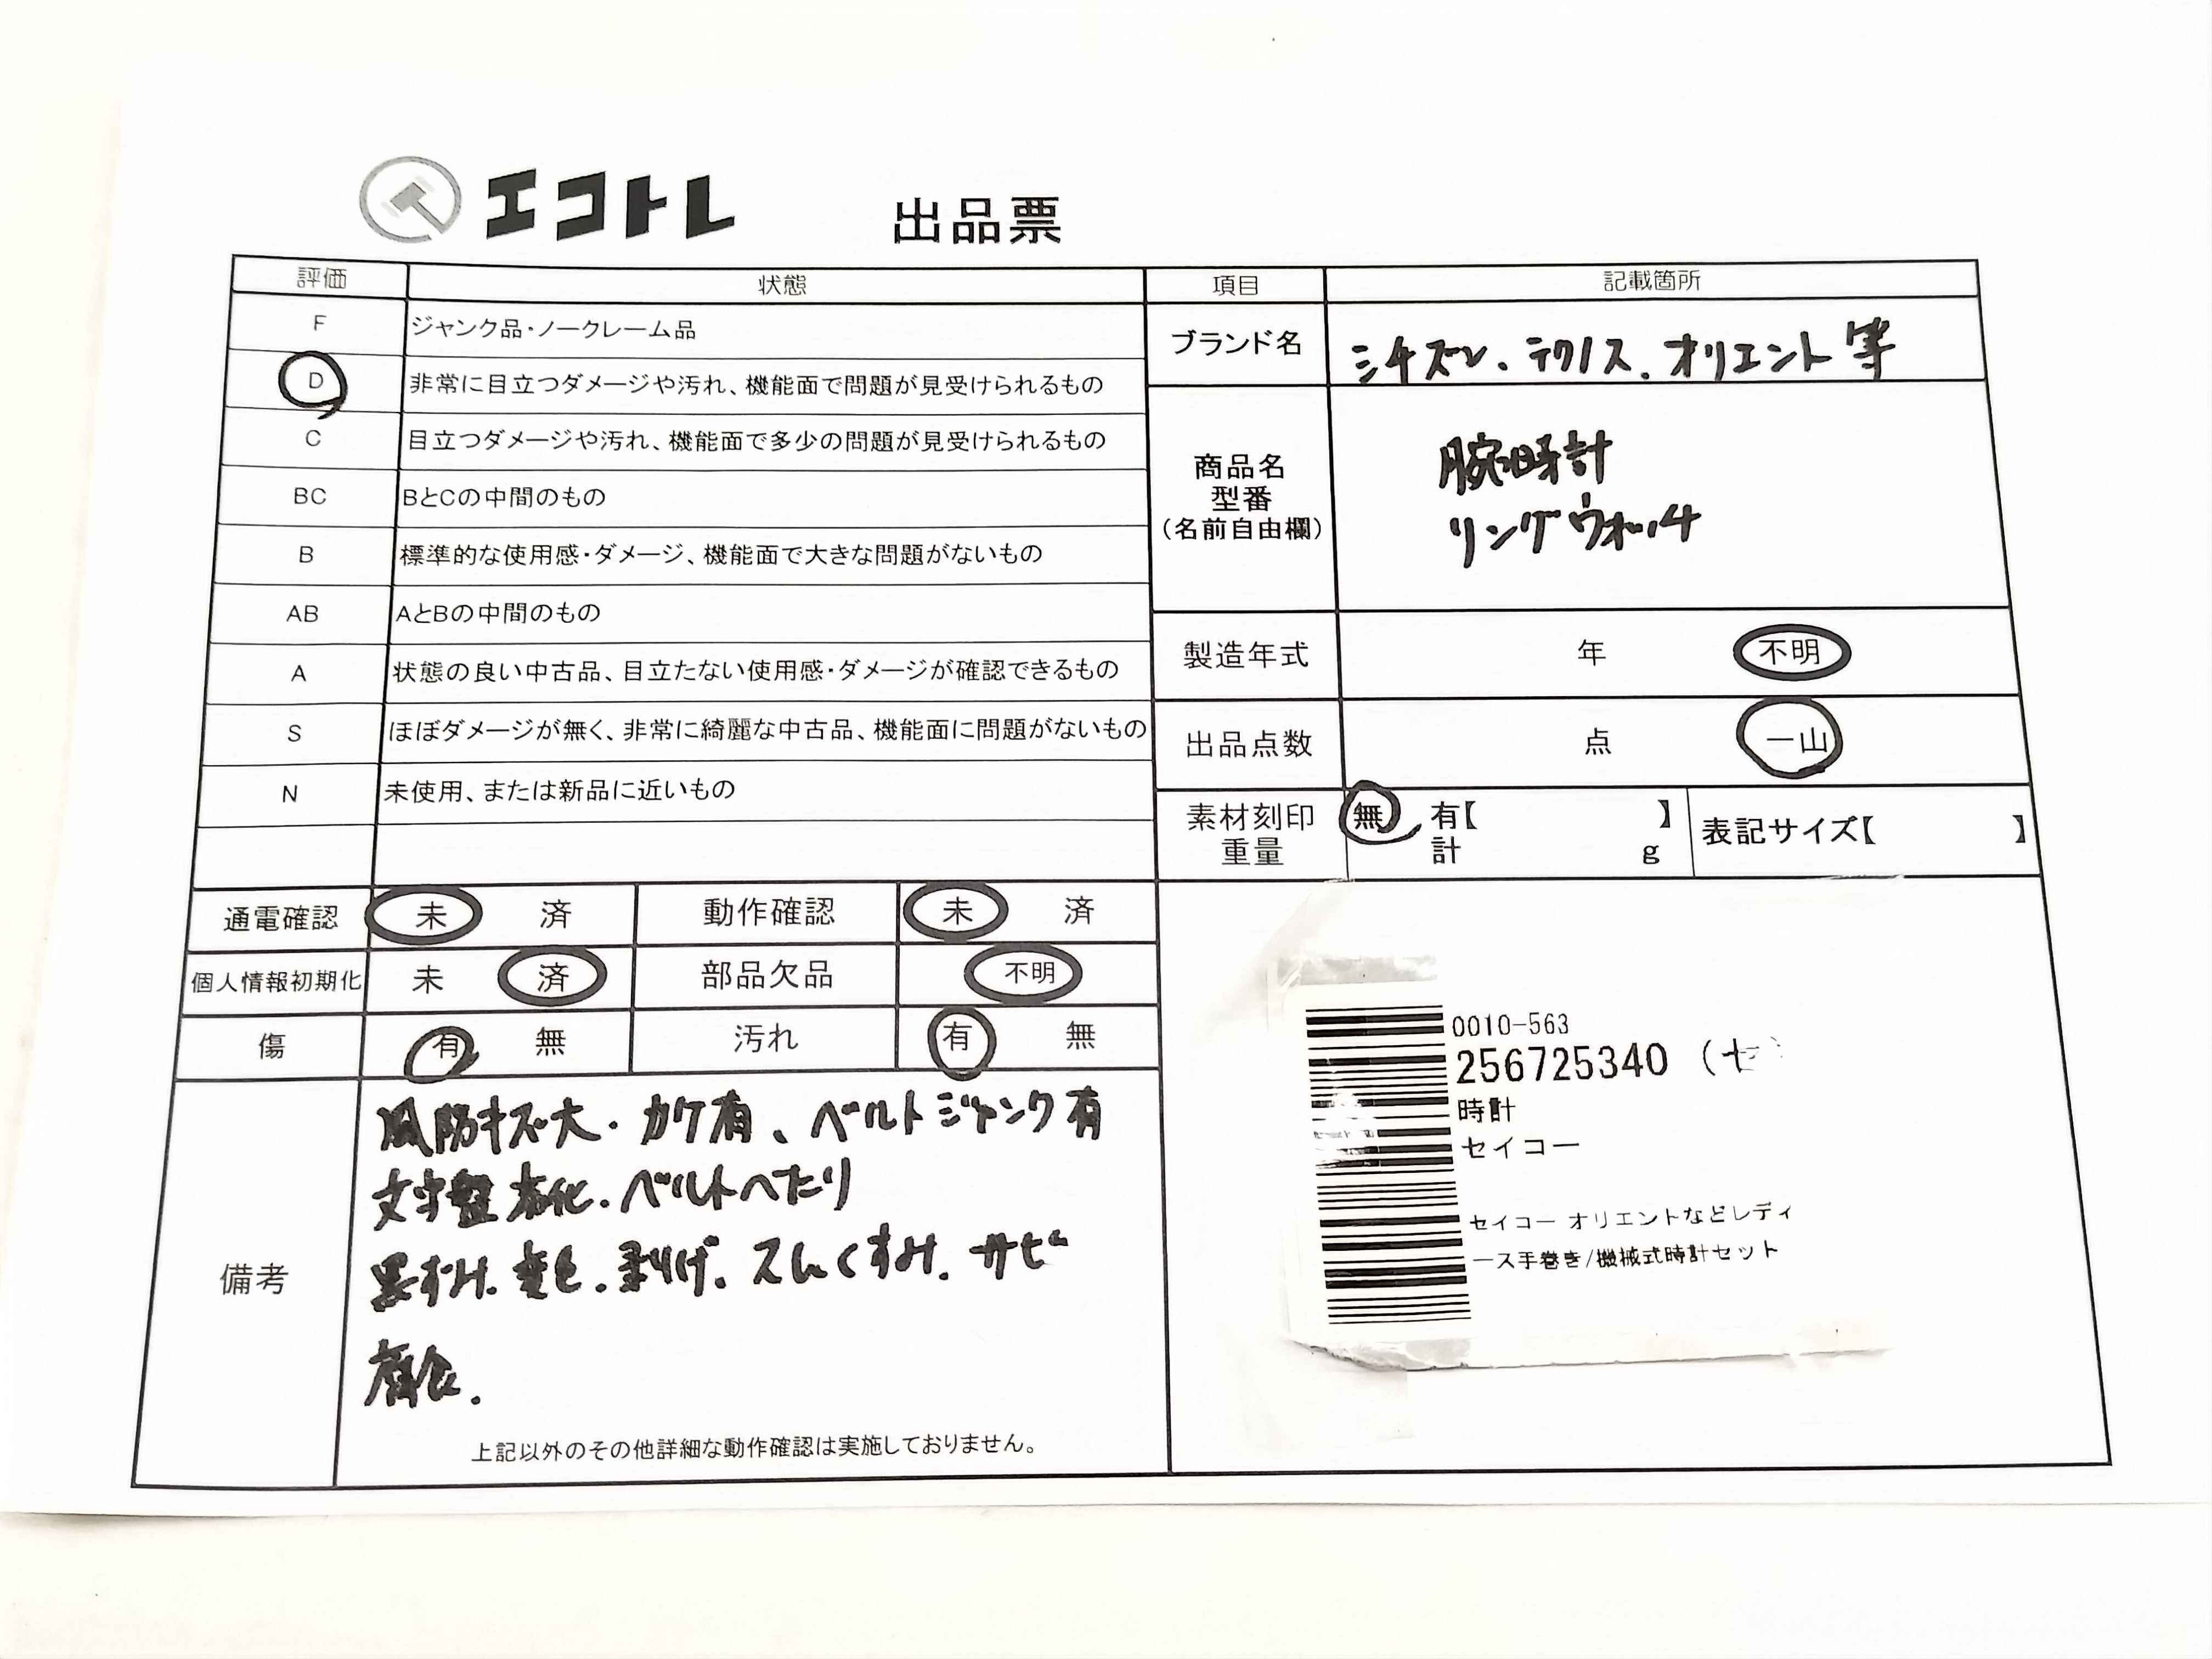 エコトレ 出品票
評価 状態 項目 記載箇所
F ジャンク品・ノークレーム品
D 非常に目立つダメージや汚れ、機能面で問題が見受けられるもの
C 目立つダメージや汚れ、機能面で多少の問題が見受けられるもの
BC BとCの中間のもの
B 標準的な使用感・ダメージ、機能面で大きな問題がないもの
AB AとBの中間のもの
A 状態の良い中古品、目立たない使用感・ダメージが確認できるもの
S ほぼダメージが無く、非常に綺麗な中古品、機能面に問題がないもの
N 未使用、または新品に近いもの
ブランド名 シチズン、テクノス、オリエント等
商品名
型番
(名前自由欄)
腕時計
リングウォッチ
製造年式 年 不明
出品点数 点 一山
素材刻印
重量
無 有【 】
計 g
表記サイズ【 】
通電確認 未 済 動作確認 未 済
個人情報初期化 未 済 部品欠品 不明
傷 有 無 汚れ 有 無
備考
風防キズ大・カケ有、ベルトジャンク有
文字盤劣化、ベルトへたり
黒ずみ、変色、剥げ、スレ、くすみ、サビ
腐食、
上記以外のその他詳細な動作確認は実施しておりません。
0010-563
256725340 (セ
時計
セイコー
セイコー オリエントなどレディ
ース手巻き/機械式時計セット